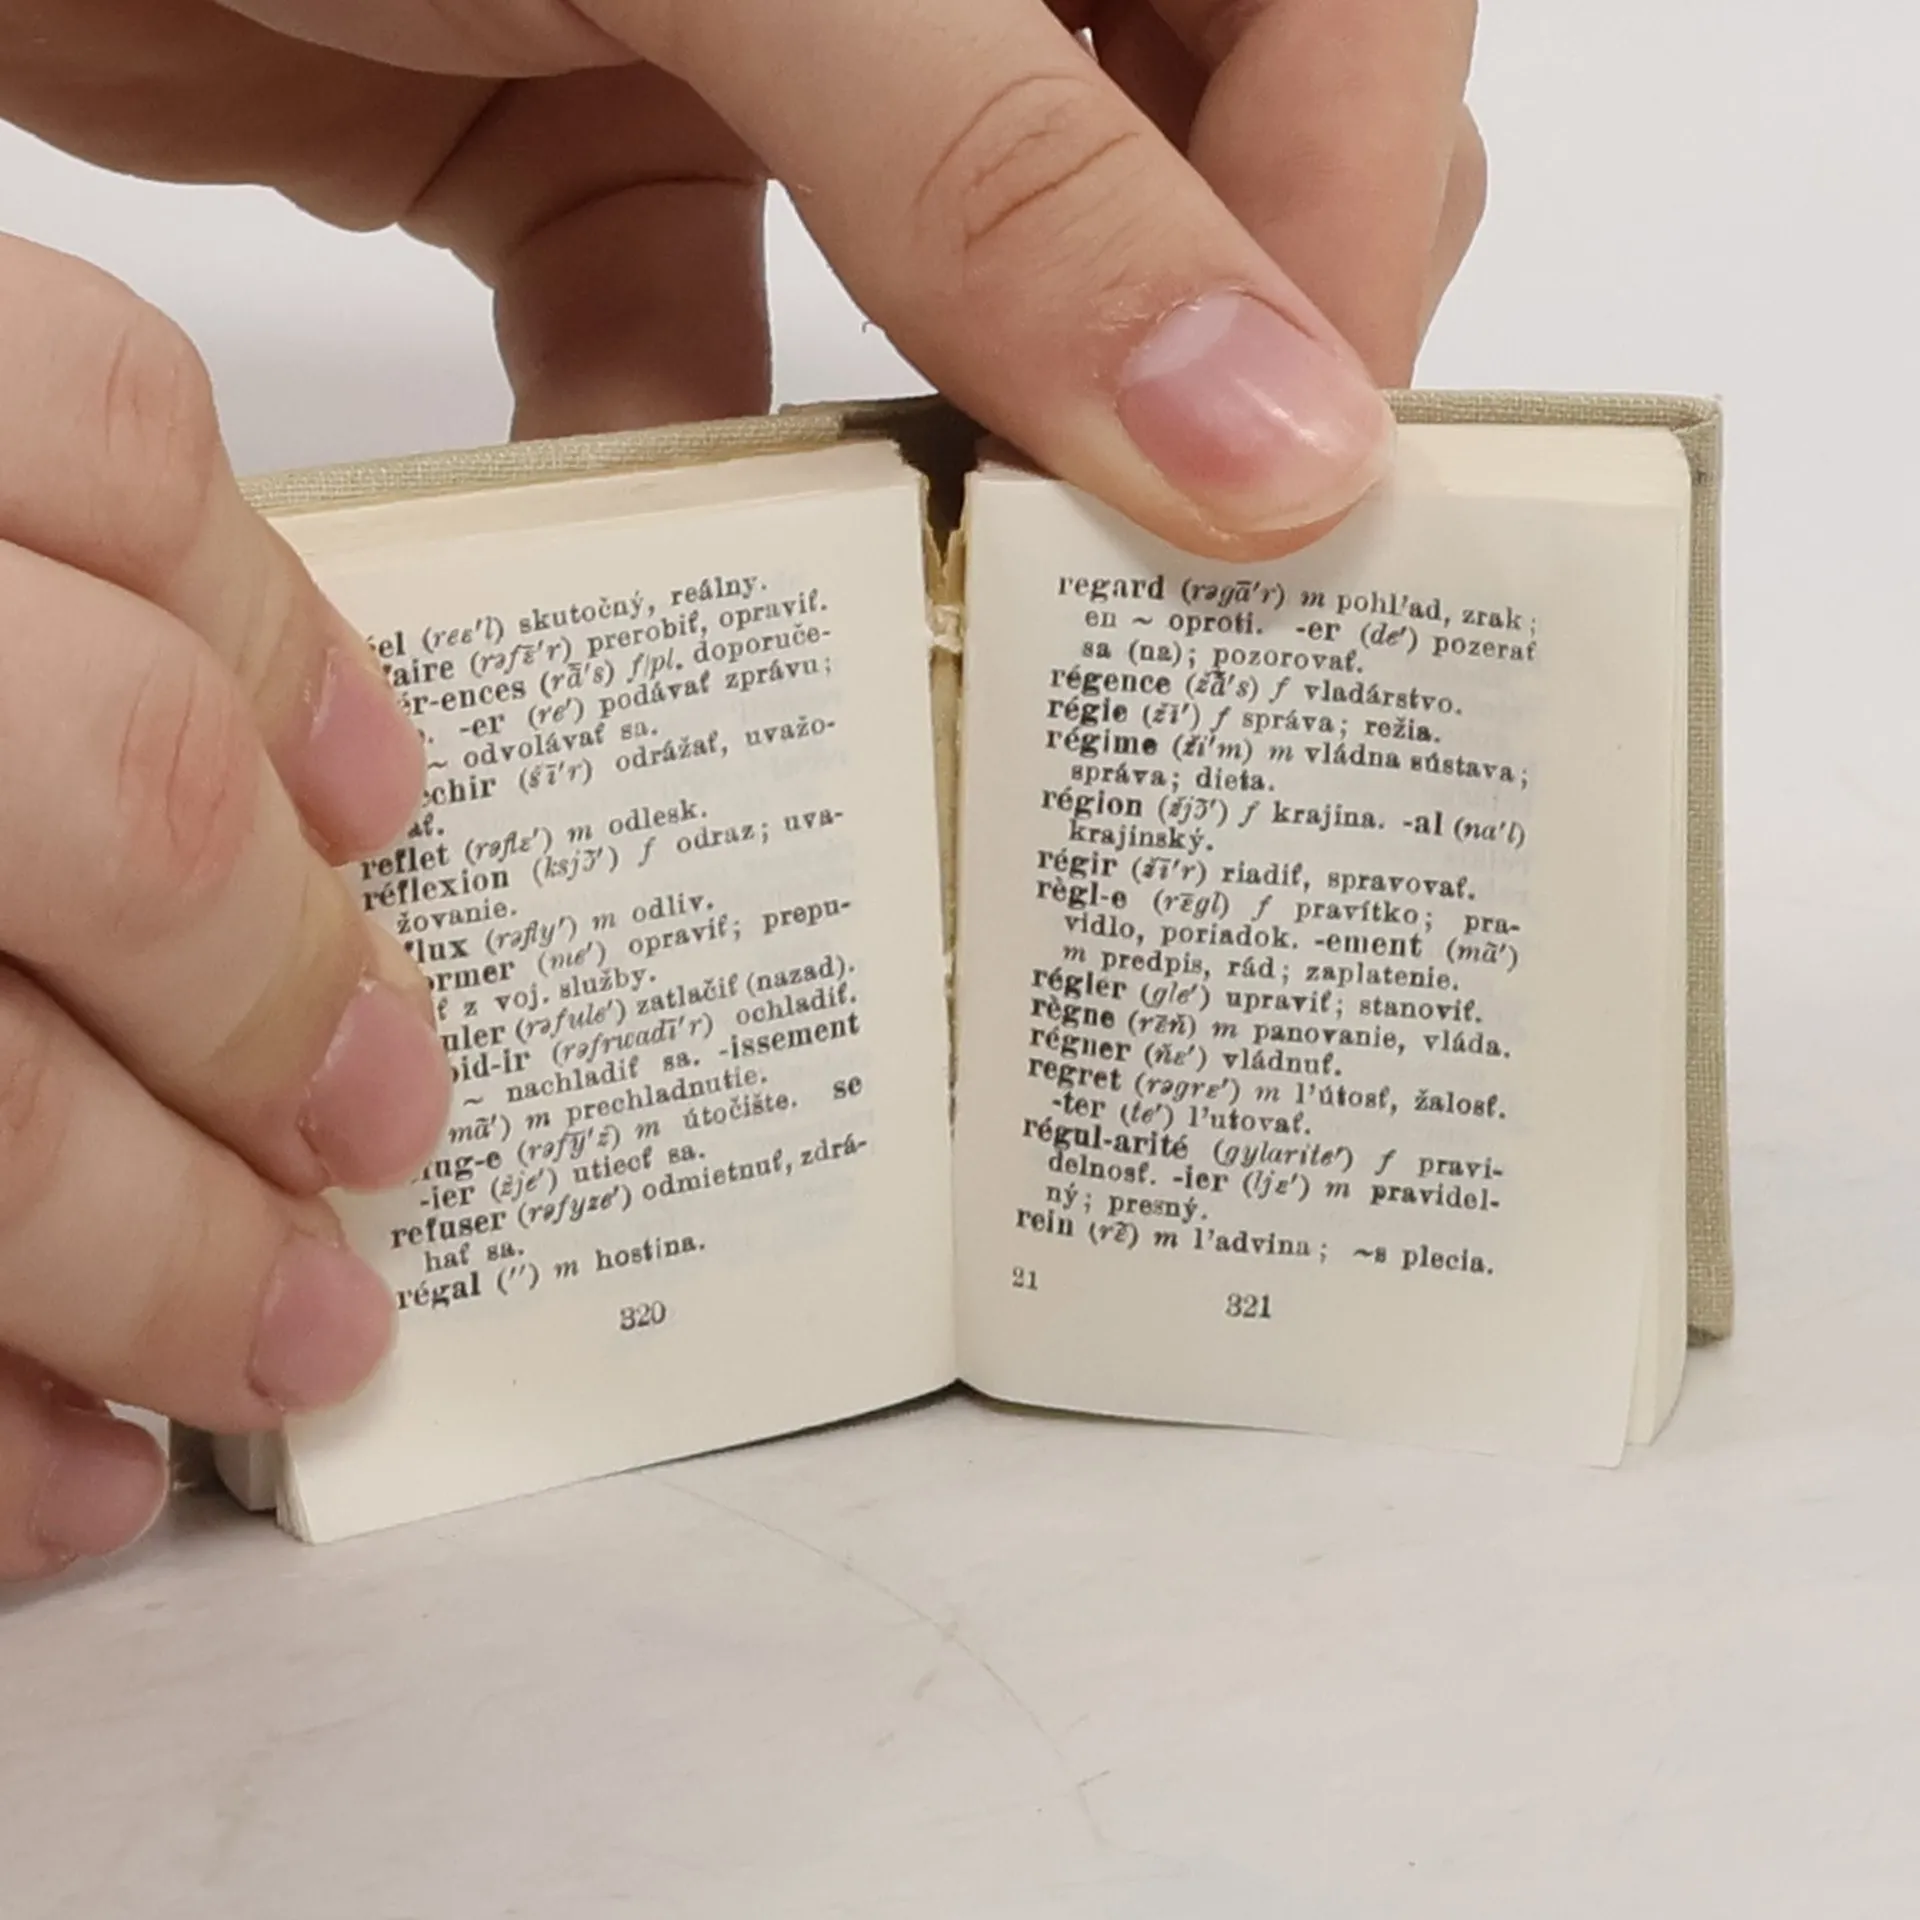 (reɛ'l) skutočný, reálny.
(rəfɛ̄'r) prerobiť, opraviť.
ér-ences (rɑ̃̄'s) f/pl. doporuče-
-er (re') podávať zprávu;
~ odvolávať sa.
(šī'r) odrážať, uvažo-
ať.
reflet (rəflɛ') m odlesk.
réflexion (ksjɔ̃') f odraz; uva-
žovanie.
(rəfly') m odliv.
(me') opraviť; prepu-
z voj. služby.
(rəfule') zatlačiť (nazad).
(rəfrwadī'r) ochladiť.
~ nachladiť sa. -issement
mɑ̃') m prechladnutie.
(rəfȳ'ž) m útočište. se
-ier (žje') utiecť sa.
refuser (rəfyze') odmietnuť, zdrá-
hať sa.
régal (") m hostina.
320
regard (rəgā'r) m pohľad, zrak;
en ~ oproti. -er (de') pozerať
sa (na); pozorovať.
régence (žɑ̃̄'s) f vladárstvo.
régie (ži') f správa; režia.
régime (ži'm) m vládna sústava;
správa; dieta.
région (žjɔ̃') f krajina. -al (na'l)
krajinský.
régir (žī'r) riadiť, spravovať.
règl-e (rɛ̄gl) f pravítko; pra-
vidlo, poriadok. -ement (mɑ̃')
m predpis, rád; zaplatenie.
régler (gle') upraviť; stanoviť.
règne (rɛ̄ň) m panovanie, vláda.
régner (ňɛ') vládnuť.
regret (rəgrɛ') m ľútosť, žalosť.
-ter (te') ľutovať.
régul-arité (gylarite') f pravi-
delnosť. -ier (ljɛ') m pravidel-
ný; presný.
rein (rɛ̃) m ľadvina; ~s plecia.
21
321